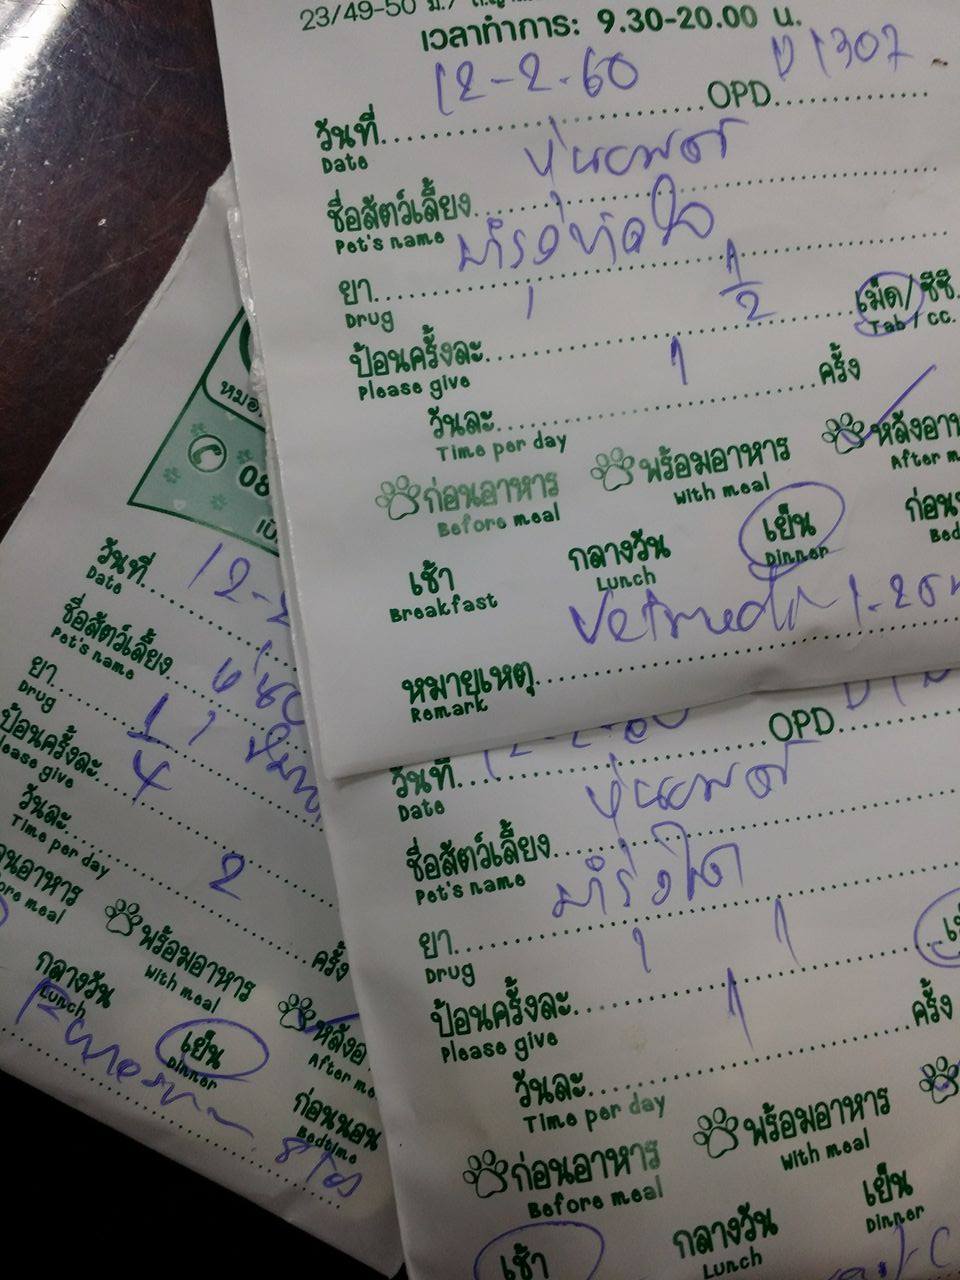 23/49-50 ม.7
เวลาทำการ: 9.30-20.00 น.
วันที่ 12-2-60 OPD 1307
Date
ชื่อสัตว์เลี้ยง หุ่นยนต์
Pet's name
ยา บำรุงหัวใจ
Drug
ป้อนครั้งละ 1/2 เม็ด/ซีซี
Please give Tab / cc.
วันละ 1 ครั้ง
Time per day
ก่อนอาหาร พร้อมอาหาร หลังอาห
Before meal With meal After m
เช้า กลางวัน เย็น ก่อน
Breakfast Lunch Dinner Bed
หมายเหตุ Vetmedin 1.25
Remark
หมอ
08
วันที่ 12-2
Date
ชื่อสัตว์เลี้ยง หุ่น
Pet's name
ยา
Drug
ป้อนครั้งละ 1/4
lease give
วันละ 2 ครั้ง
Time per day
อนอาหาร พร้อมอาหาร หลังอ
ore meal With meal After me
กลางวัน เย็น ก่อนนอน
Lunch Dinner Bedtime
วันที่ 12-2-60 OPD
Date
ชื่อสัตว์เลี้ยง หุ่นยนต์
Pet's name
ยา บำรุงไต
Drug
ป้อนครั้งละ 1
Please give
วันละ 1 ครั้ง
Time per day
ก่อนอาหาร พร้อมอาหาร
Before meal With meal
เช้า กลางวัน เย็น
Lunch Dinner